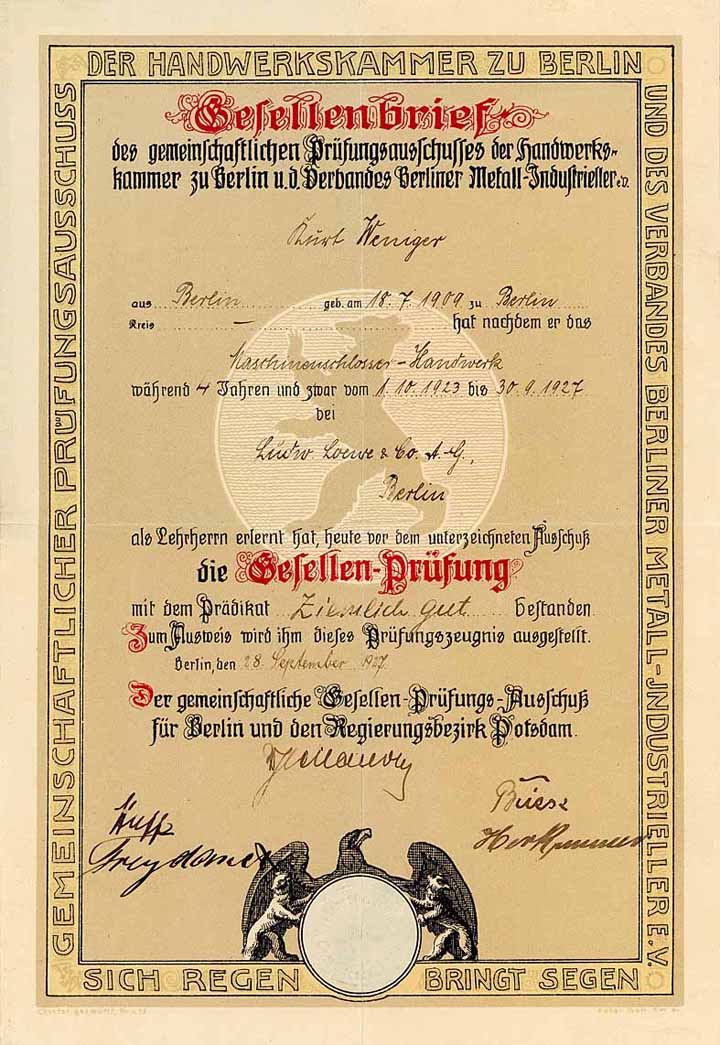 DER HANDWERKSKAMMER ZU BERLIN
GEMEINSCHAFTLICHER PRÜFUNGSAUSSCHUSS
UND DES VERBANDES BERLINER METALL-INDUSTRIELLER E.V.
Gesellenbrief
des gemeinschaftlichen Prüfungsausschusses der Handwerks-
kammer zu Berlin u. d. Verbandes Berliner Metall-Industrieller e.V.
Kurt Weniger
aus Berlin geb. am 18.7.1909 zu Berlin
Kreis – hat nachdem er das
Maschinenschlosser-Handwerk
während 4 Jahren und zwar vom 1.10.1923 bis 30.9.1927
bei
Ludw. Loewe & Co. A.-G.,
Berlin
als Lehrherrn erlernt hat, heute vor dem unterzeichneten Ausschuß
die Gesellen-Prüfung
mit dem Prädikat Ziemlich gut bestanden
Zum Ausweis wird ihm dieses Prüfungszeugnis ausgestellt.
Berlin, den 28. September 1927
Der gemeinschaftliche Gesellen-Prüfungs-Ausschuß
für Berlin und den Regierungsbezirk Potsdam.
Busse
SICH REGEN BRINGT SEGEN